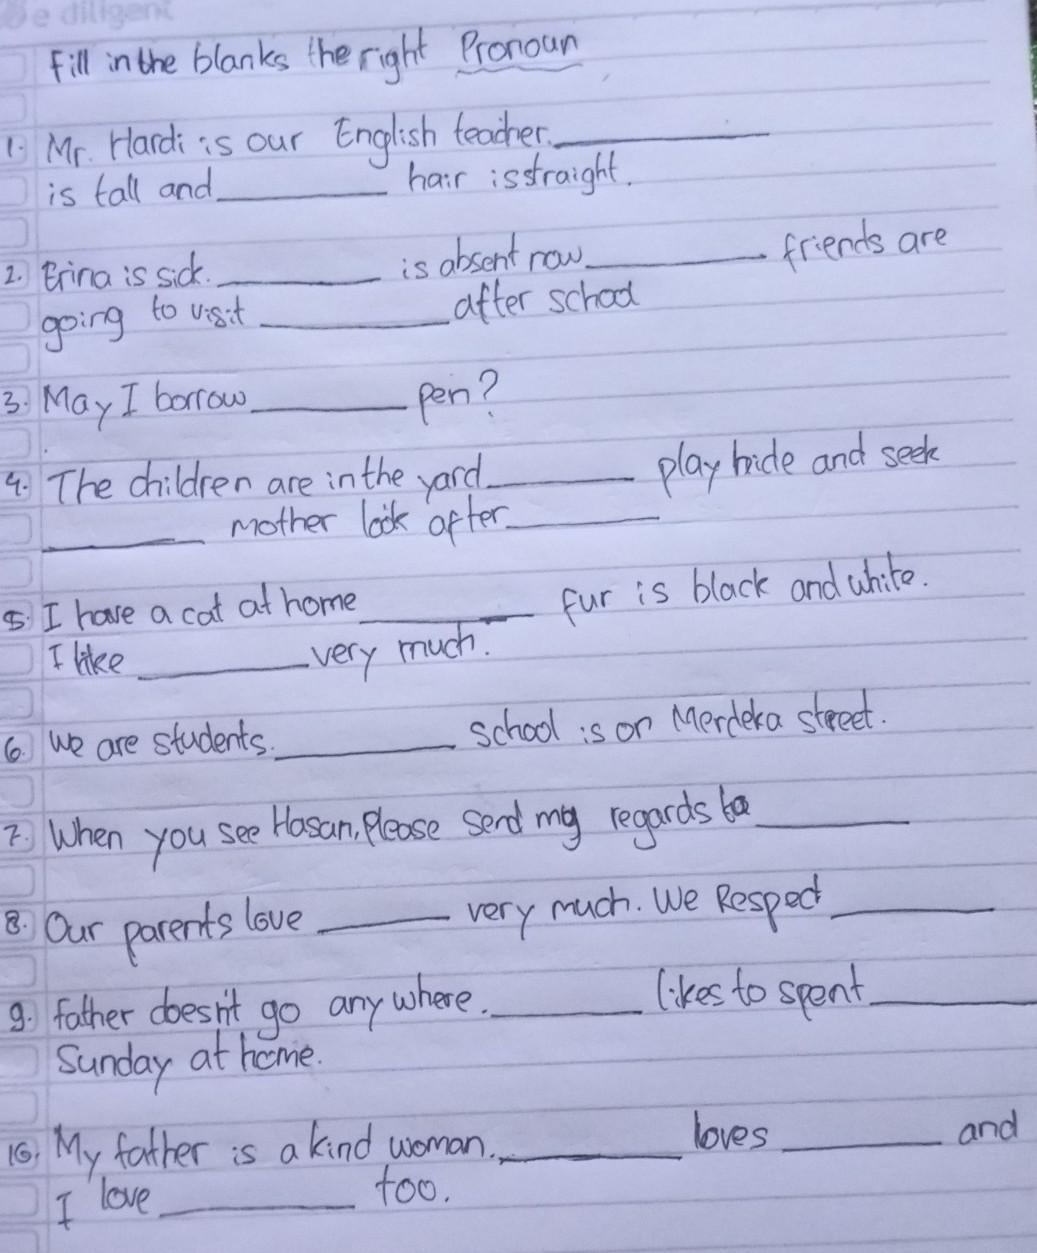 Be diligent
Fill in the blanks the right Pronoun
1. Mr. Hardi is our English teacher. __________
is tall and __________ hair is straight.
2. Erina is sick. __________ is absent now __________ friends are
going to visit __________ after school
3. May I borrow __________ pen?
4. The children are in the yard __________ play hide and seek
__________ mother look after __________
5. I have a cat at home __________ fur is black and white.
I like __________ very much.
6. We are students. __________ school is on Merdeka street.
7. When you see Hasan, Please send my regards to __________
8. Our parents love __________ very much. We Respect __________
9. father doesn't go any where. __________ likes to spent __________
Sunday at home.
10. My father is a kind woman. __________ loves __________ and
I love __________ too.